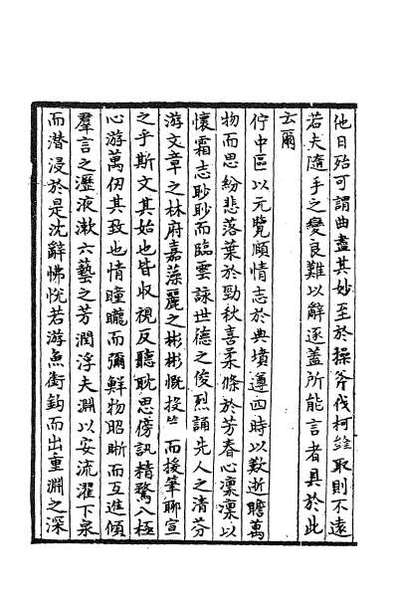 他日殆可謂曲盡其妙至於操斧伐柯雖取則不遠
若夫隨手之變良難以辭逐蓋所能言者具於此
云爾
佇中區以元覽頤情志於典墳遵四時以歎逝瞻萬
物而思紛悲落葉於勁秋喜柔條於芳春心凜凜以
懷霜志眇眇而臨雲詠世德之俊烈誦先人之清芬
游文章之林府嘉藻麗之彬彬慨投 而援筆聊宣
之乎斯文其始也皆收視反聽耽思傍訊精騖八極
心游萬仞其致也情曈曨而彌鮮物昭晰而互進傾
羣言之瀝液漱六藝之芳潤浮天淵以安流濯下泉
而潛浸於是沈辭怫悅若游魚銜鈎而出重淵之深